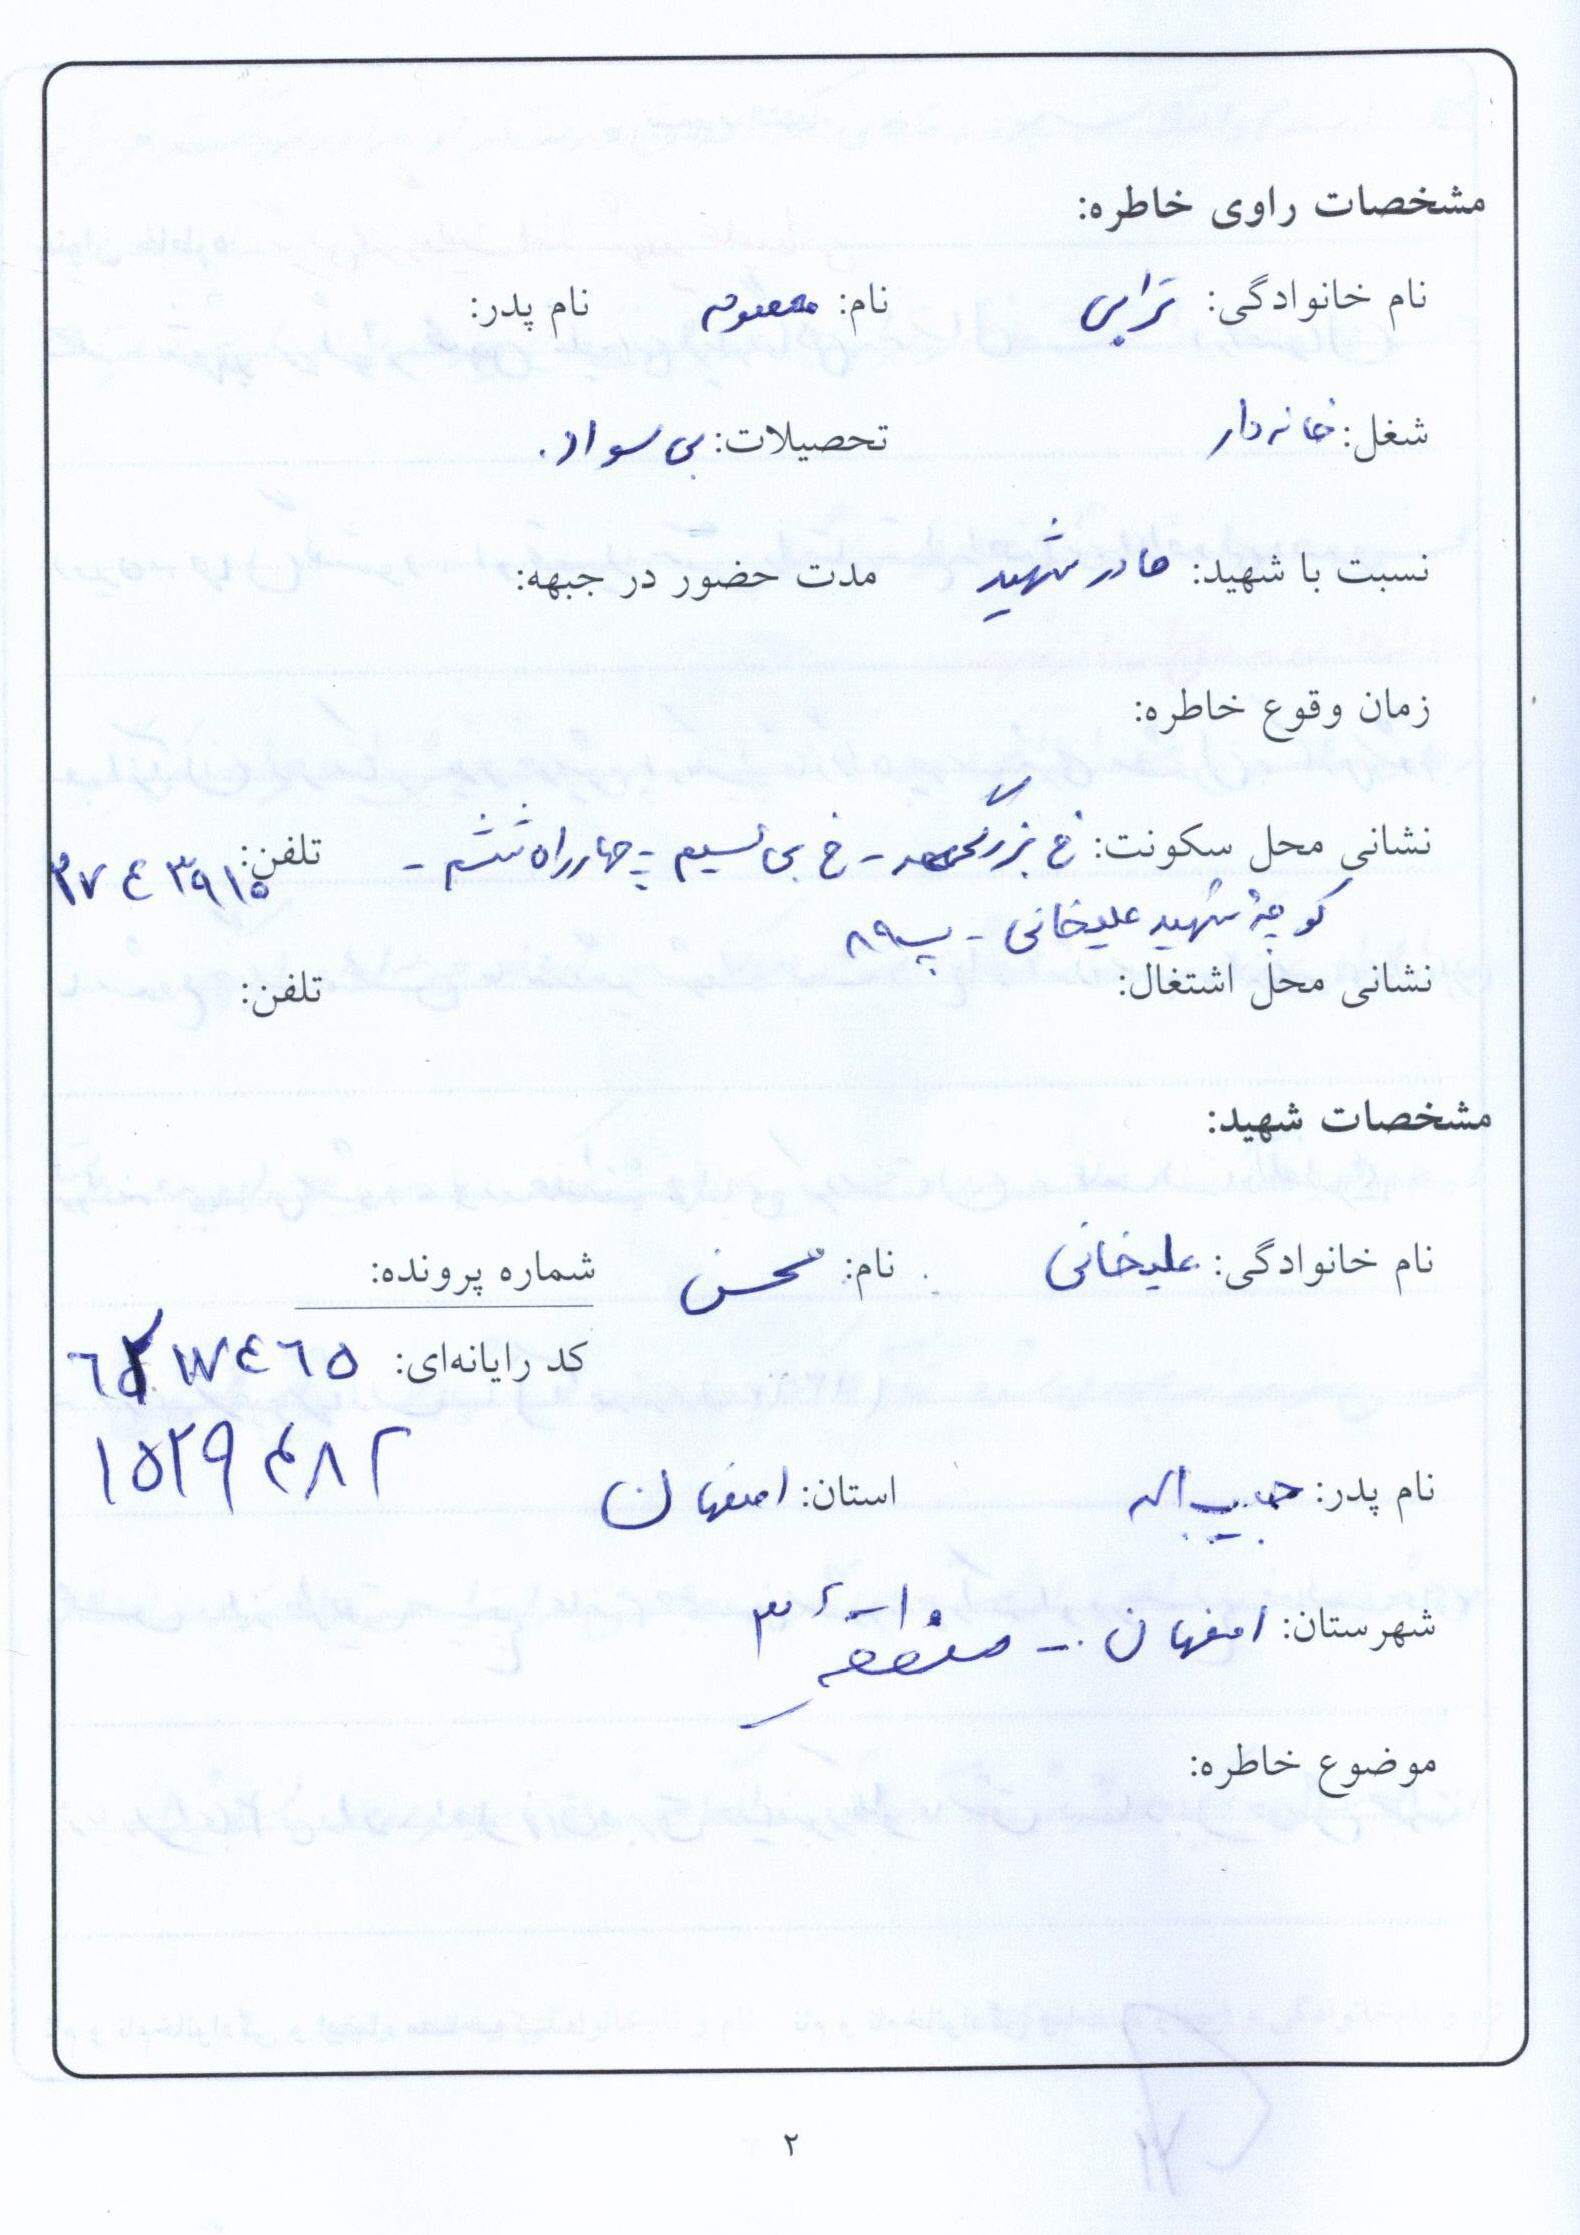 مشخصات راوی خاطره:
نام خانوادگی: ترابی نام: معصومه نام پدر:
شغل: خانه‌دار تحصیلات: بی سواد.
نسبت با شهید: مادر شهید مدت حضور در جبهه:
زمان وقوع خاطره:
نشانی محل سکونت: خ بزرگمهر - خ بی سیم - چهارراه ششم - تلفن:
کوچهٔ شهید علیخانی - پ ۸۹
نشانی محل اشتغال: تلفن:
مشخصات شهید:
نام خانوادگی: علیخانی نام: محسن شماره پرونده:
کد رایانه‌ای:
۱۵۲۹۴۸۲
نام پدر: حبیب اله استان: اصفهان
شهرستان: اصفهان - منطقه ۳
موضوع خاطره:
۲